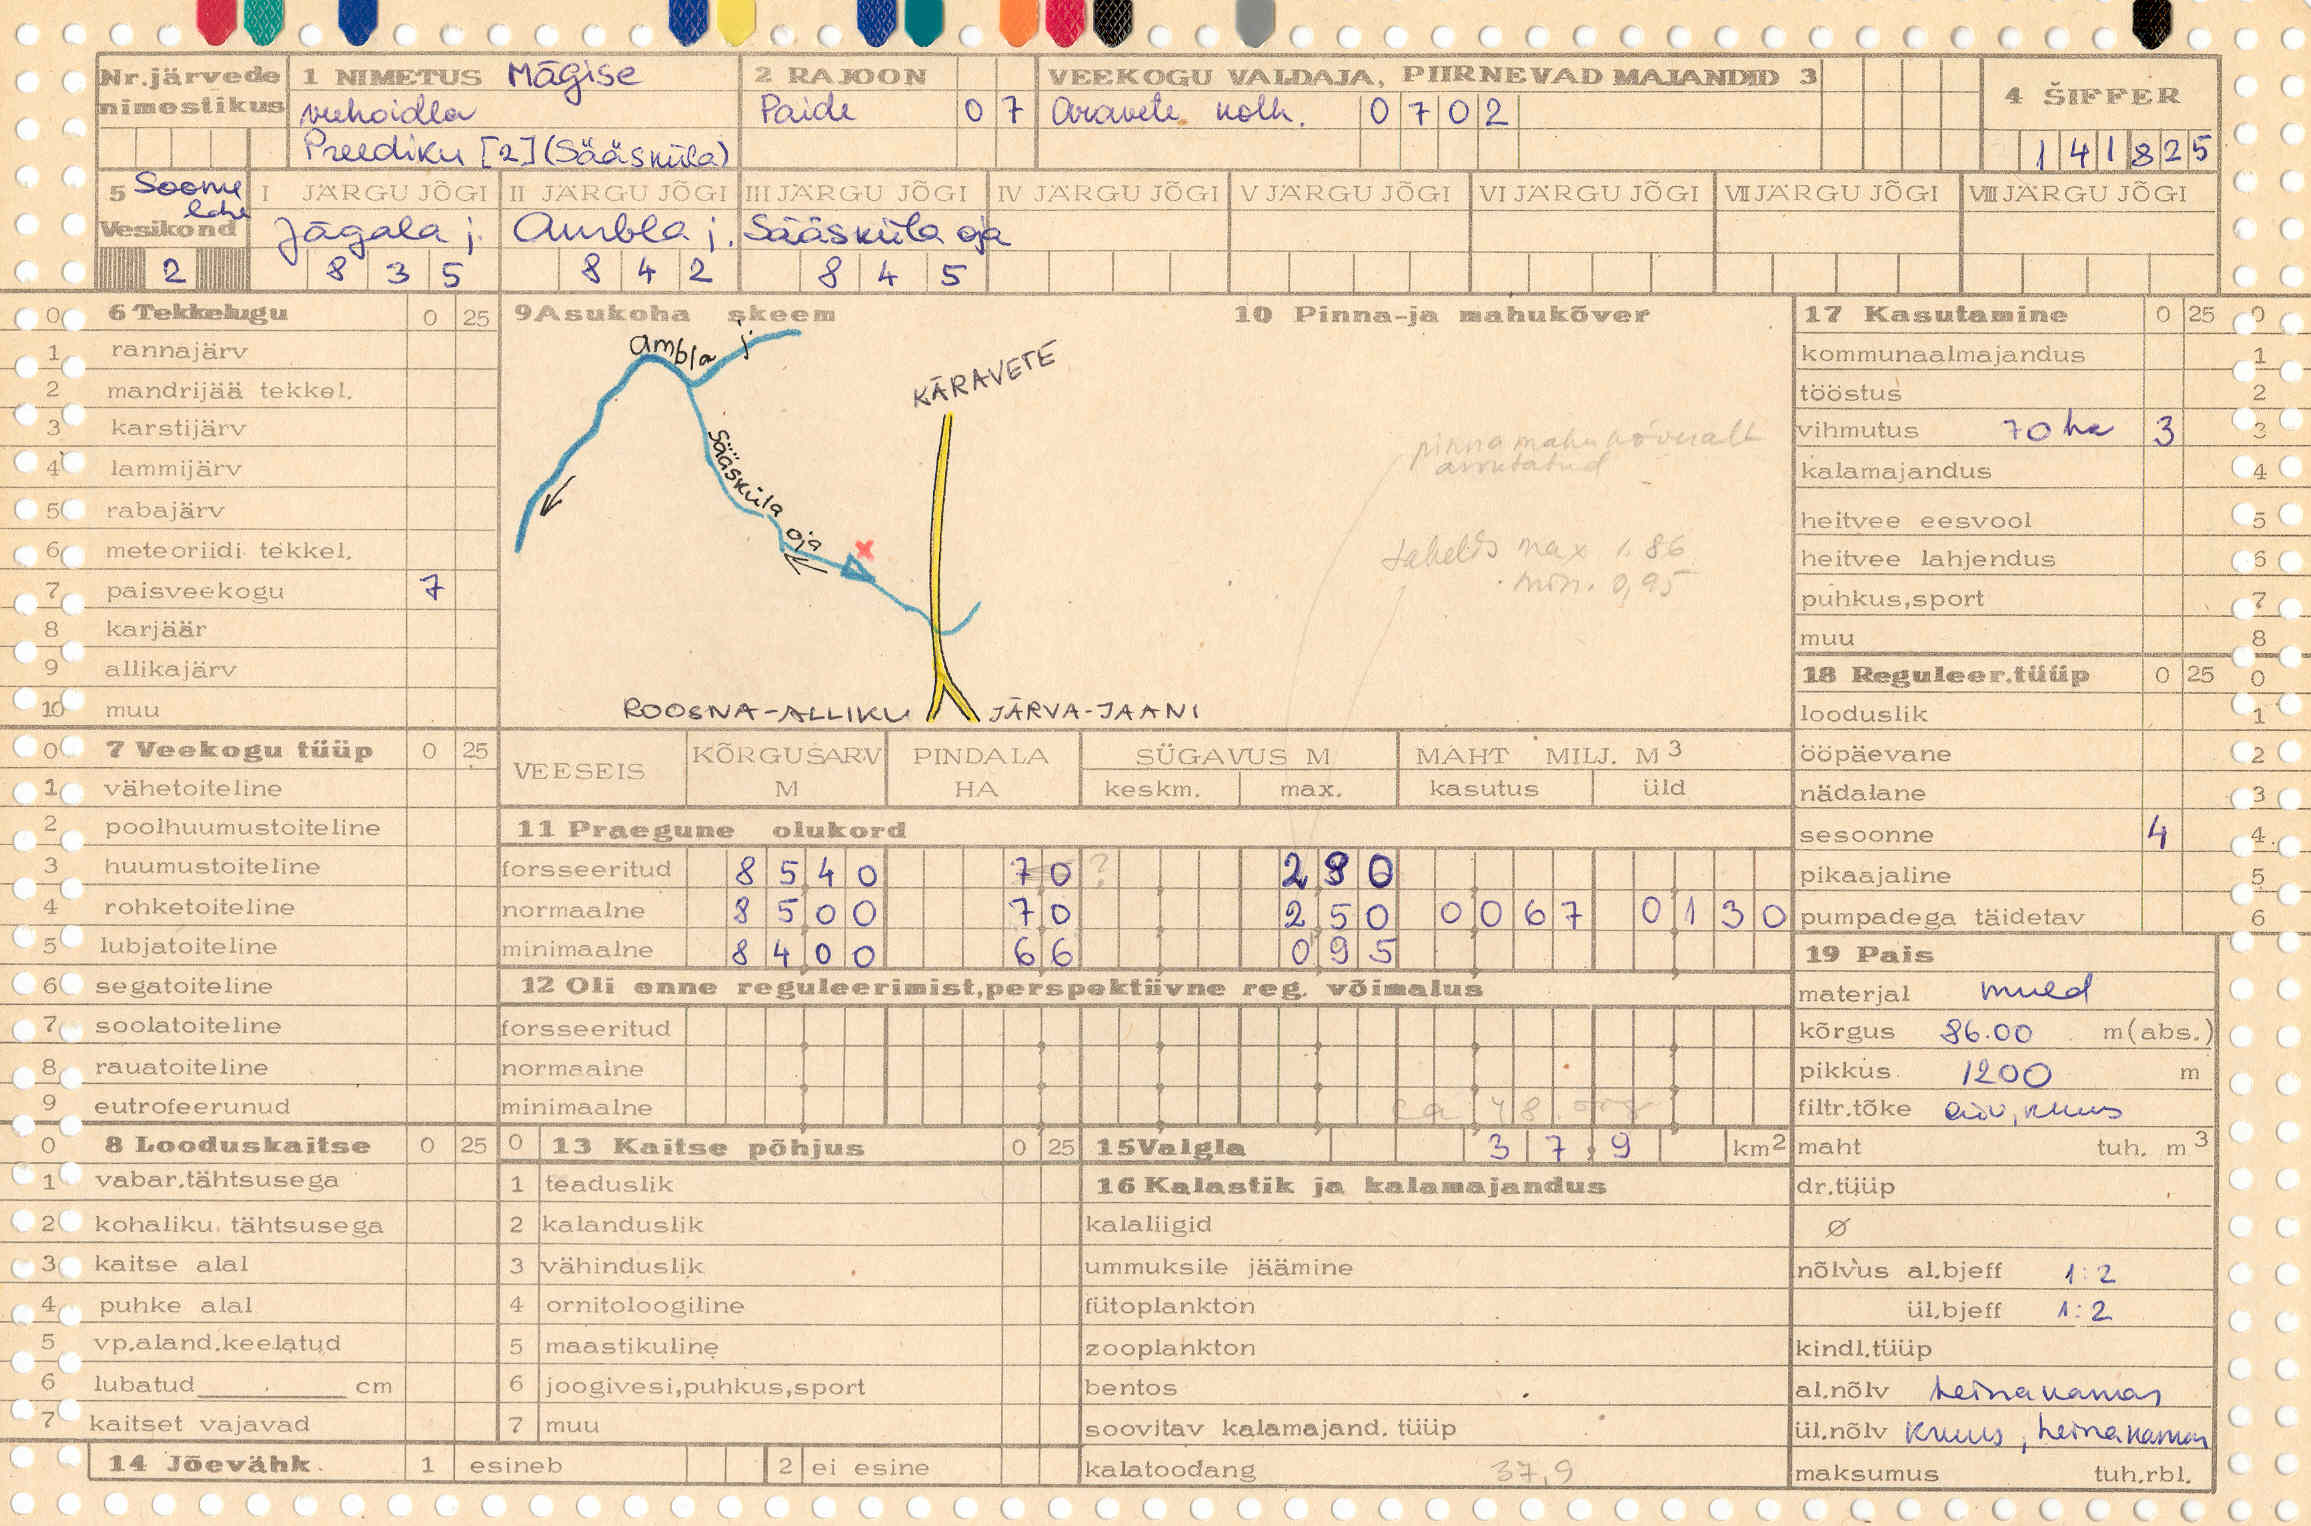 Nr.järvede nimestikus
1 NIMETUS Mägise
veehoidla
Preediku [2] (Sääsküla)
2 RAJOON
Paide 0 7
VEEKOGU VALDAJA, PIIRNEVAD MAJANDID 3
Aravete kolh. 0 7 0 2
4 ŠIFFER
1 4 1 8 2 5
5 Soome lahe
Vesikond
2
I JÄRGU JÕGI
Jägala j.
8 3 5
II JÄRGU JÕGI
Ambla j.
8 4 2
III JÄRGU JÕGI
Sääsküla oja
8 4 5
IV JÄRGU JÕGI
V JÄRGU JÕGI
VI JÄRGU JÕGI
VII JÄRGU JÕGI
VIII JÄRGU JÕGI
0 6 Tekkelugu 0 25
1 rannajärv
2 mandrijää tekkel.
3 karstijärv
4 lammijärv
5 rabajärv
6 meteoriidi tekkel.
7 paisveekogu 7
8 karjäär
9 allikajärv
10 muu
0 7 Veekogu tüüp 0 25
1 vähetoiteline
2 poolhuumustoiteline
3 huumustoiteline
4 rohketoiteline
5 lubjatoiteline
6 segatoiteline
7 soolatoiteline
8 rauatoiteline
9 eutrofeerunud
0 8 Looduskaitse 0 25
1 vabar.tähtsusega
2 kohaliku tähtsusega
3 kaitse alal
4 puhke alal
5 vp.aland.keelatud
6 lubatud cm
7 kaitset vajavad
14 Jõevähk 1 esineb 2 ei esine
9 Asukoha skeem
Ambla j.
Sääsküla oja
x
KÄRAVETE
ROOSNA-ALLIKU
JÄRVA-JAANI
10 Pinna-ja mahukõver
pinna mahu kõveralt
arvutatud
tabelis max 1.86
min. 0,95
VEESEIS
KÕRGUSARV M
PINDALA HA
SÜGAVUS M
keskm. max.
MAHT MILJ. M3
kasutus üld
11 Praegune olukord
forsseeritud 8 5 4 0 7 0 ? 2 8 0
normaalne 8 5 0 0 7 0 2 5 0 0 0 6 7 0 1 3 0
minimaalne 8 4 0 0 6 6 0 9 5
12 Oli enne reguleerimist,perspektiivne reg. võimalus
forsseeritud
normaalne
minimaalne
0 13 Kaitse põhjus 0 25
1 teaduslik
2 kalanduslik
3 vähinduslik
4 ornitoloogiline
5 maastikuline
6 joogivesi,puhkus,sport
7 muu
15 Valgla 3 7 9 km2
16 Kalastik ja kalamajandus
kalaliigid
ummuksile jäämine
fütoplankton
zooplankton
bentos
soovitav kalamajand. tüüp
kalatoodang 37,9
17 Kasutamine 0 25 0
kommunaalmajandus 1
tööstus 2
vihmutus 70 ha 3 3
kalamajandus 4
heitvee eesvool 5
heitvee lahjendus 6
puhkus,sport 7
muu 8
18 Reguleer.tüüp 0 25 0
looduslik 1
ööpäevane 2
nädalane 3
sesoonne 4 4
pikaajaline 5
pumpadega täidetav 6
19 Pais
materjal muld
kõrgus 86.00 m(abs.)
pikkus 1200 m
filtr.tõke
maht tuh. m3
dr.tüüp
Ø
nõlvus al.bjeff 1:2
ül.bjeff 1:2
kindl.tüüp
al.nõlv heinakamar
ül.nõlv kruus, heinakamar
maksumus tuh.rbl.